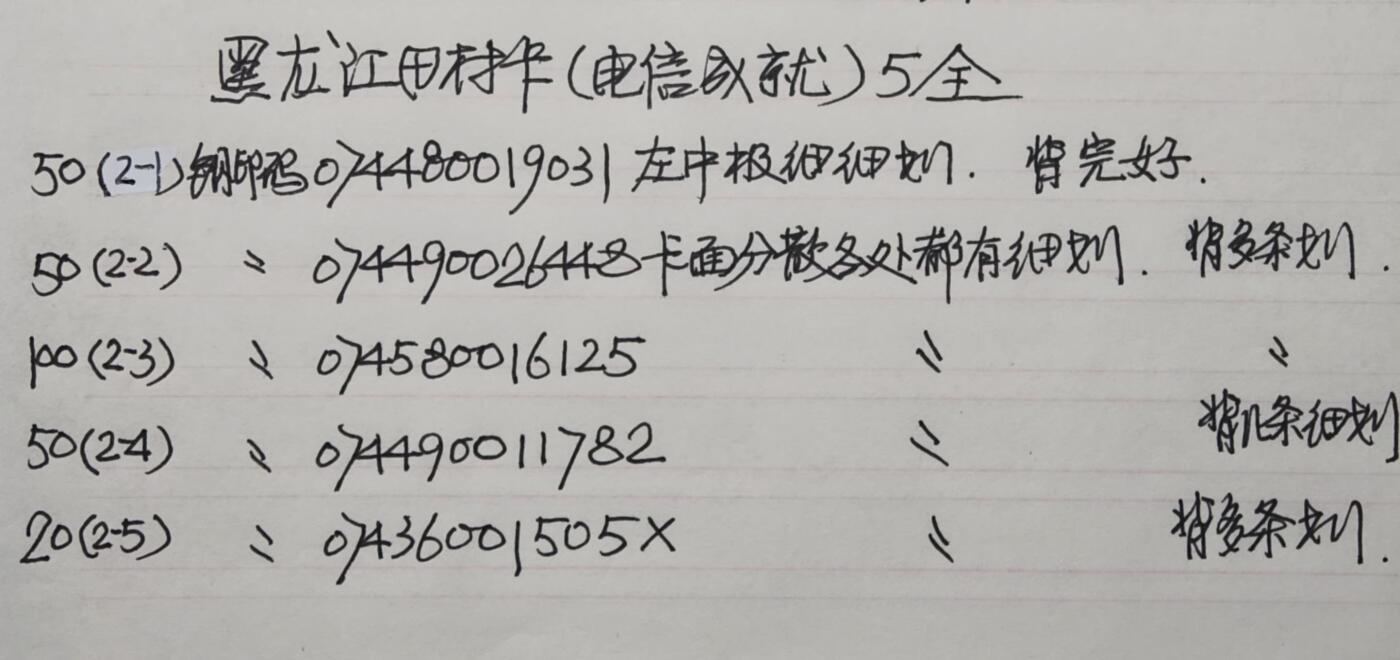 黑龙江田村卡(电信成就)5全
50(2-1)钢印码074480019031左中极细细划. 背完好.
50(2-2) 〃 074490026448卡面分散各处都有细划. 背多条划.
100(2-3) 〃 074580016125 〃 〃
50(2-4) 〃 074490011782 〃 背几条细划
20(2-5) 〃 07436001505X 〃 背多条划.